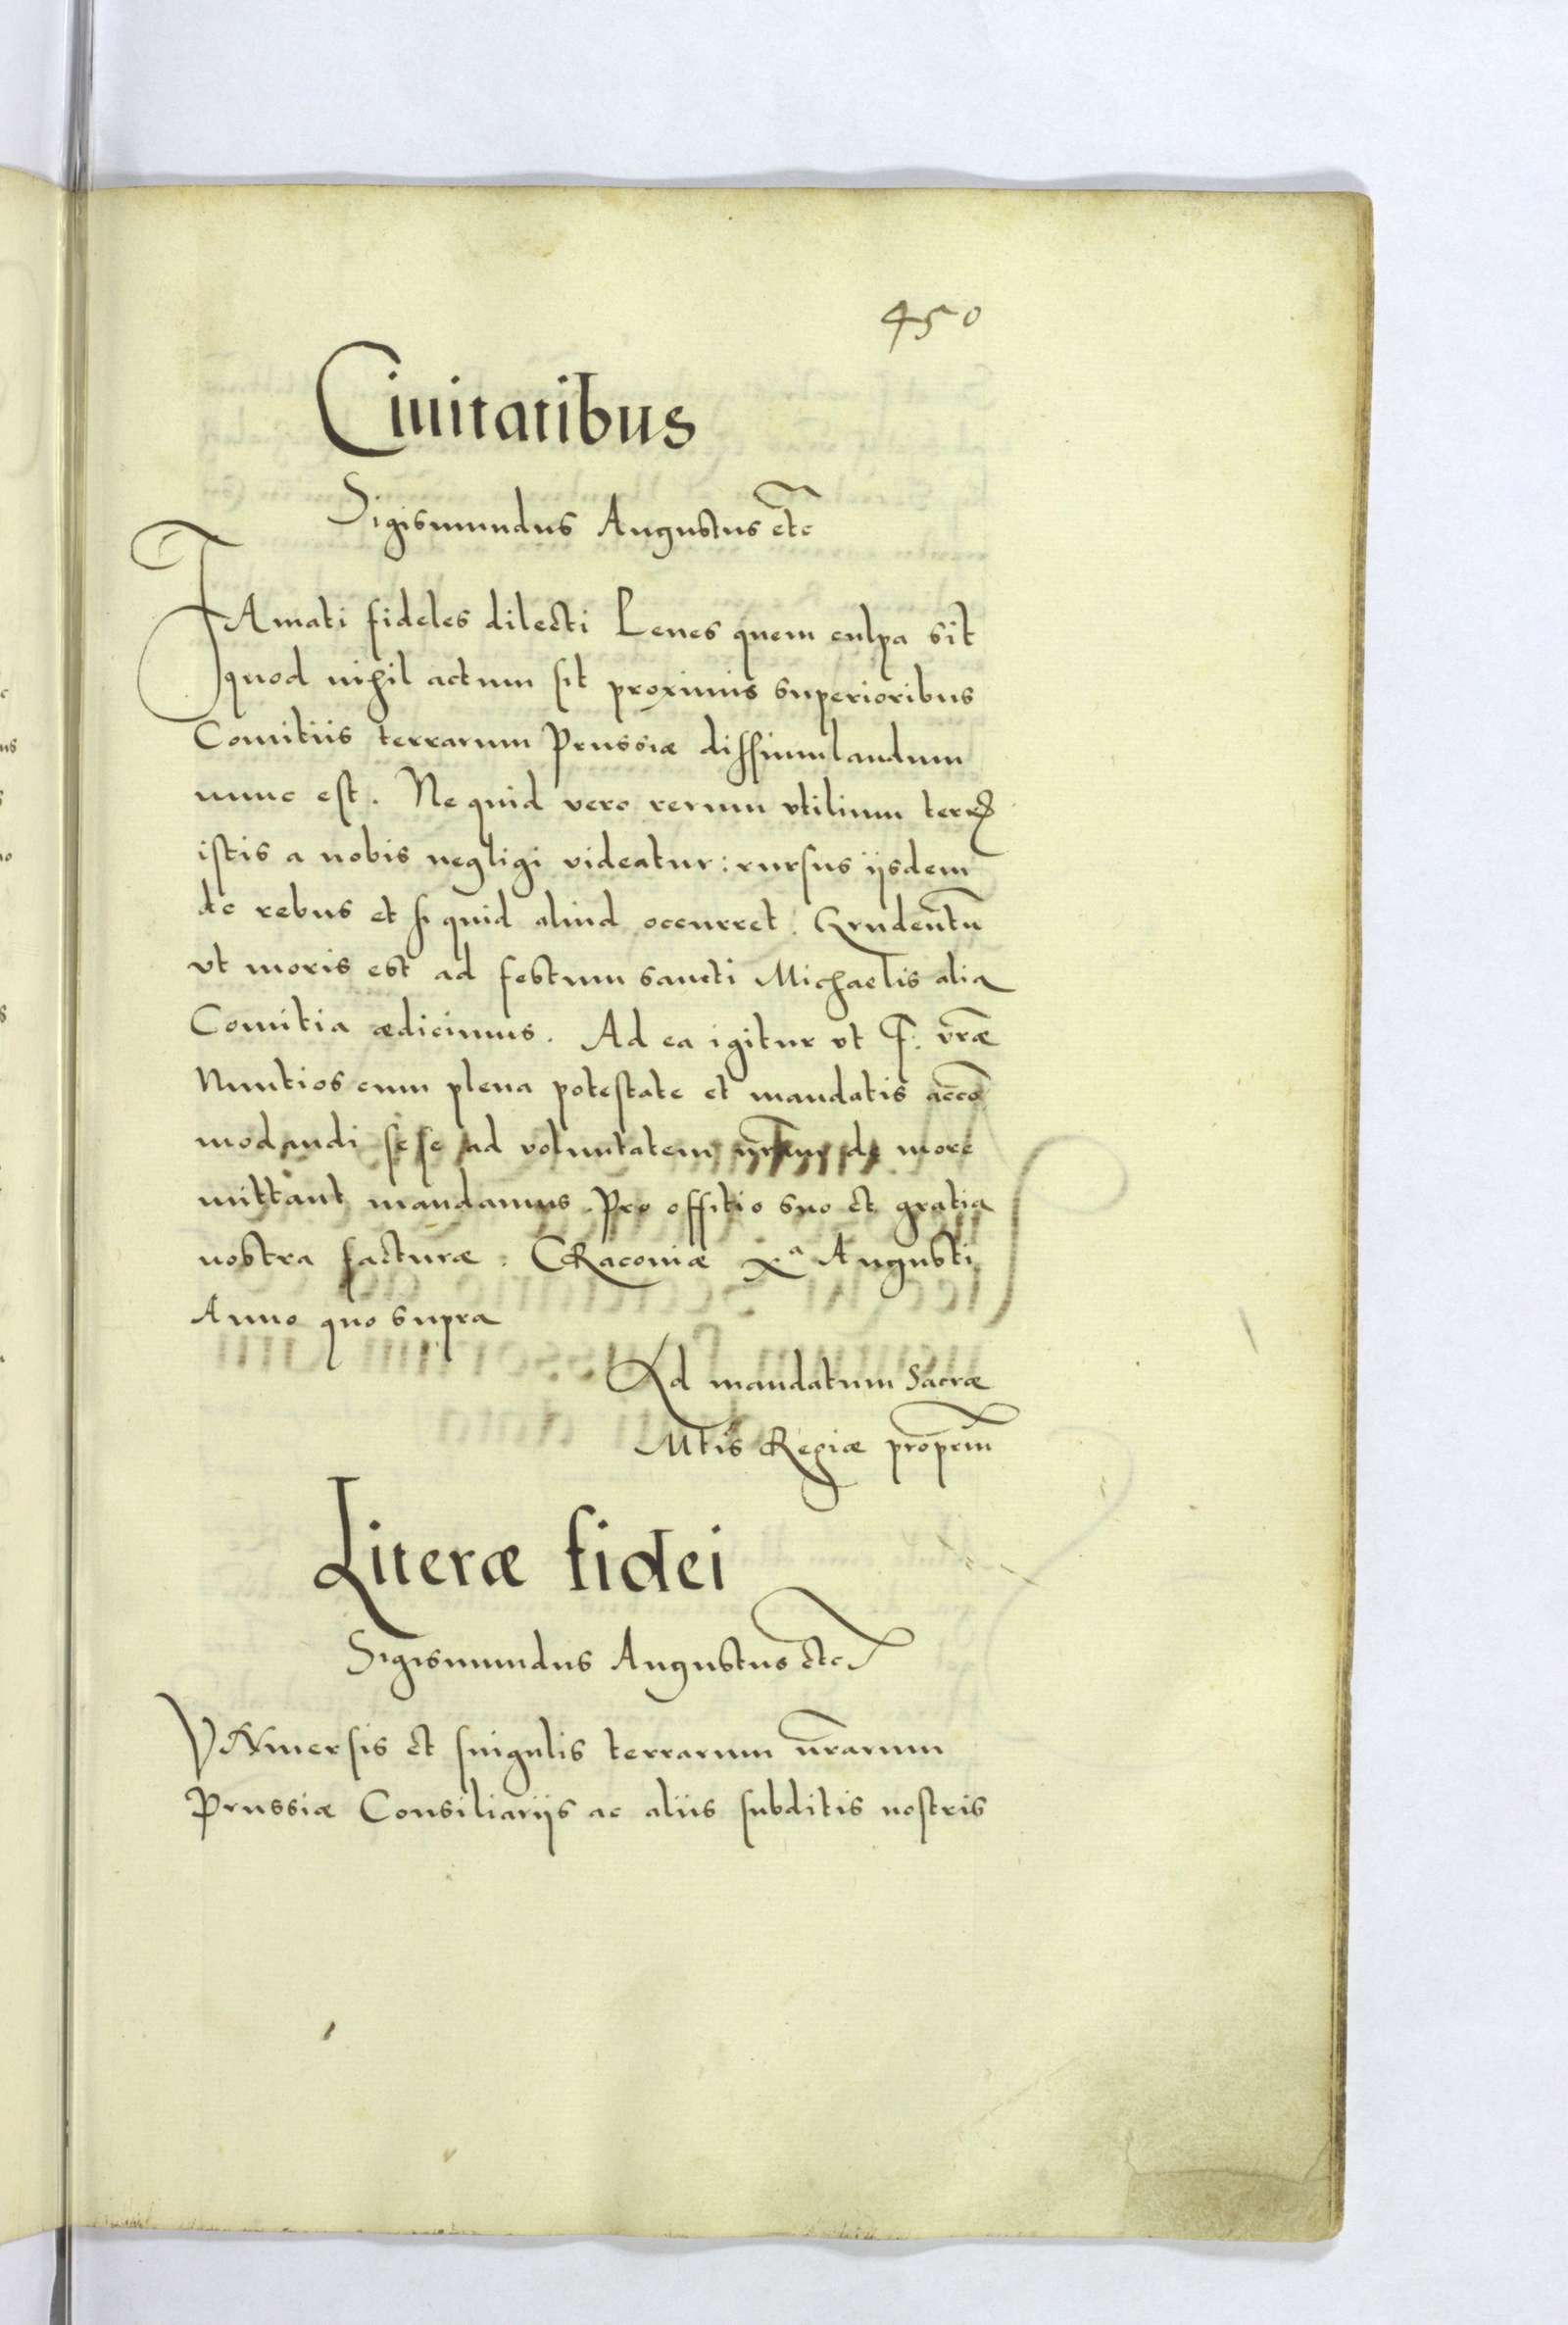 450
Ciuitatibus
Sigismundus Augustus etc
FAmati fideles dilecti Penes quem culpa sit
quod nihil actum sit proximis superioribus
Comitiis terrarum Prussiæ dissimulandum
nunc est. Ne quid vero rerum vtilium terris
istis a nobis negligi videatur: rursus ijsdem
de rebus et si quid aliud occurret. Grudentũ
vt moris est ad festum sancti Michaelis alia
Comitia ædicimus. Ad ea igitur vt F. vr̃æ
Nuntios cum plena potestate et mandatis acco
modandi sese ad voluntatem nr̃am de more
mittant mandamus. Pro offitio suo et gratia
nostra facturæ. CRacouiæ xª Augusti
Anno quo supra
Ad mandatum Sacræ
Mtis Regiæ propriũ
Literæ fidei
Sigismundus Augustus etc
VNiuersis et singulis terrarum nr̃arum
Prussiæ Consiliarijs ac aliis subditis nostris